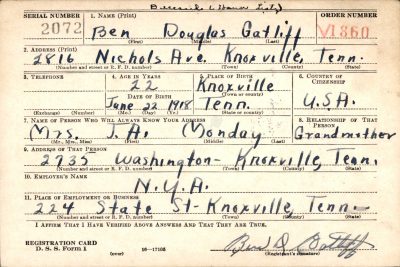 SERIAL NUMBER 1. NAME (Print) ORDER NUMBER
2072 Ben Douglas Gatliff V1860
(First) (Middle) (Last)
2. ADDRESS (Print)
2816 Nichols Ave. Knoxville, Tenn.
(Number and street or R. F. D. number) (Town) (County) (State)
3. TELEPHONE 4. AGE IN YEARS 5. PLACE OF BIRTH 6. COUNTRY OF CITIZENSHIP
22 Knoxville
DATE OF BIRTH (Town or county)
June 22 1918 Tenn. U.S.A.
(Exchange) (Number) (Mo.) (Day) (Yr.) (State or country)
7. NAME OF PERSON WHO WILL ALWAYS KNOW YOUR ADDRESS 8. RELATIONSHIP OF THAT PERSON
Mrs. J. A. Monday Grandmother
(Mr., Mrs., Miss) (First) (Middle) (Last)
9. ADDRESS OF THAT PERSON
2735 Washington - Knoxville, Tenn.
(Number and street or R. F. D. number) (Town) (County) (State)
10. EMPLOYER'S NAME
N.Y.A.
11. PLACE OF EMPLOYMENT OR BUSINESS
224 State St - Knoxville, Tenn -
(Number and street or R. F. D. number) (Town) (County) (State)
I AFFIRM THAT I HAVE VERIFIED ABOVE ANSWERS AND THAT THEY ARE TRUE.
REGISTRATION CARD
D. S. S. Form 1 (over) 16—17105 Ben D. Gatliff
(Registrant's signature)